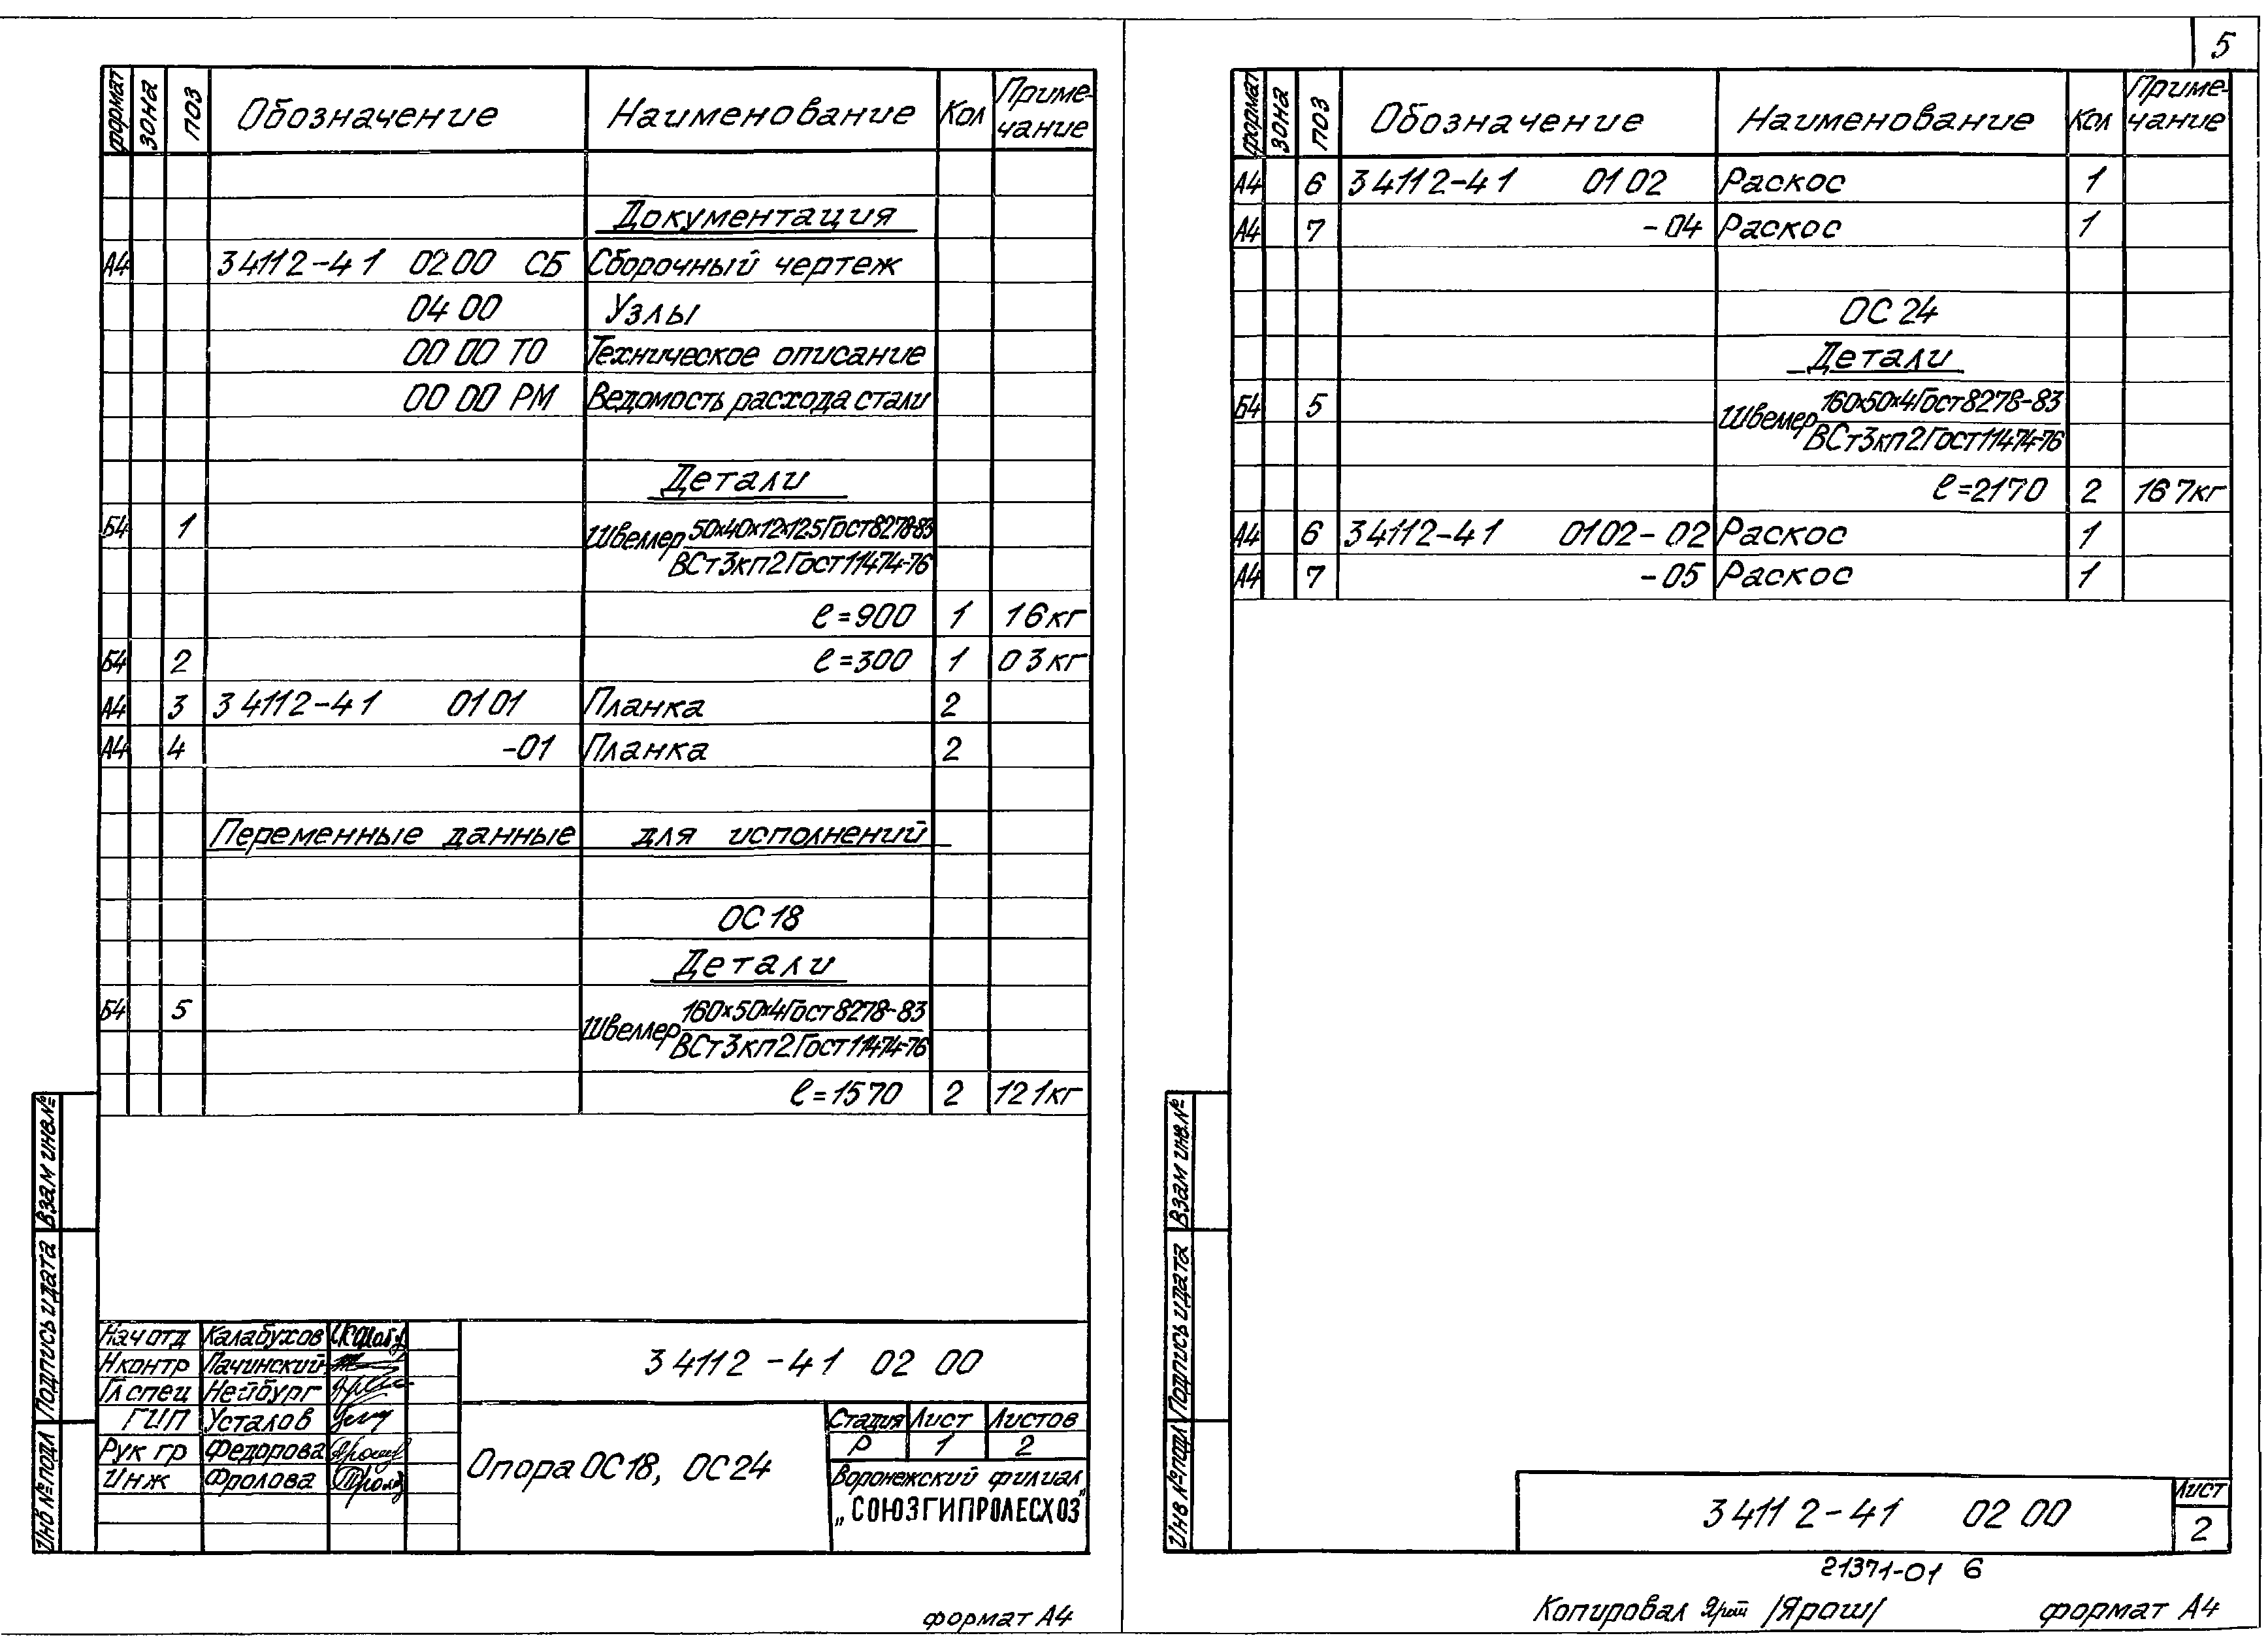 формат зона поз Обозначение Наименование Кол Приме-
чание
Документация
А4 3 4112-4 1 0200 СБ Сборочный чертеж
04 00 Узлы
00 00 ТО Техническое описание
00 00 РМ Ведомость расхода стали
Детали
Б4 1 Швеллер 50х40х12х125 Гост8278-83
ВСт3кп2Гост11474-76
ℓ=900 1 16кг
Б4 2 ℓ=300 1 03кг
А4 3 3 4112-4 1 01 01 Планка 2
А4 4 -01 Планка 2
Переменные данные для исполнений
ОС 18
Детали
Б4 5 Швеллер 160х50х4Гост8278-83
ВСт3кп2Гост11474-76
ℓ=1570 2 121кг
Взам инв.№
Подпись и дата
Инв №подл
Нач отд Калабухов
Н контр Пачинский
Гл спец Нейбург
ГИП Усталов
Рук гр Федорова
Инж Фролова
3 4112 -4 1 02 00
Опора ОС18, ОС24
Стадия Лист Листов
Р 1 2
Воронежский филиал
„СОЮЗГИПРОЛЕСХОЗ"
формат А4
5
формат зона поз Обозначение Наименование Кол Приме-
чание
А4 6 3 4112-4 1 01 02 Раскос 1
А4 7 -04 Раскос 1
ОС 24
Детали
Б4 5 Швеллер 160х50х4Гост8278-83
ВСт3кп2Гост11474-76
ℓ=2170 2 167кг
А4 6 3 4112-4 1 0102-02 Раскос 1
А4 7 -05 Раскос 1
Взам инв.№
Подпись и дата
Инв №подл
3 4112-41 02 00
Лист
2
21371-01 6
Копировал /Ярош/ формат А4